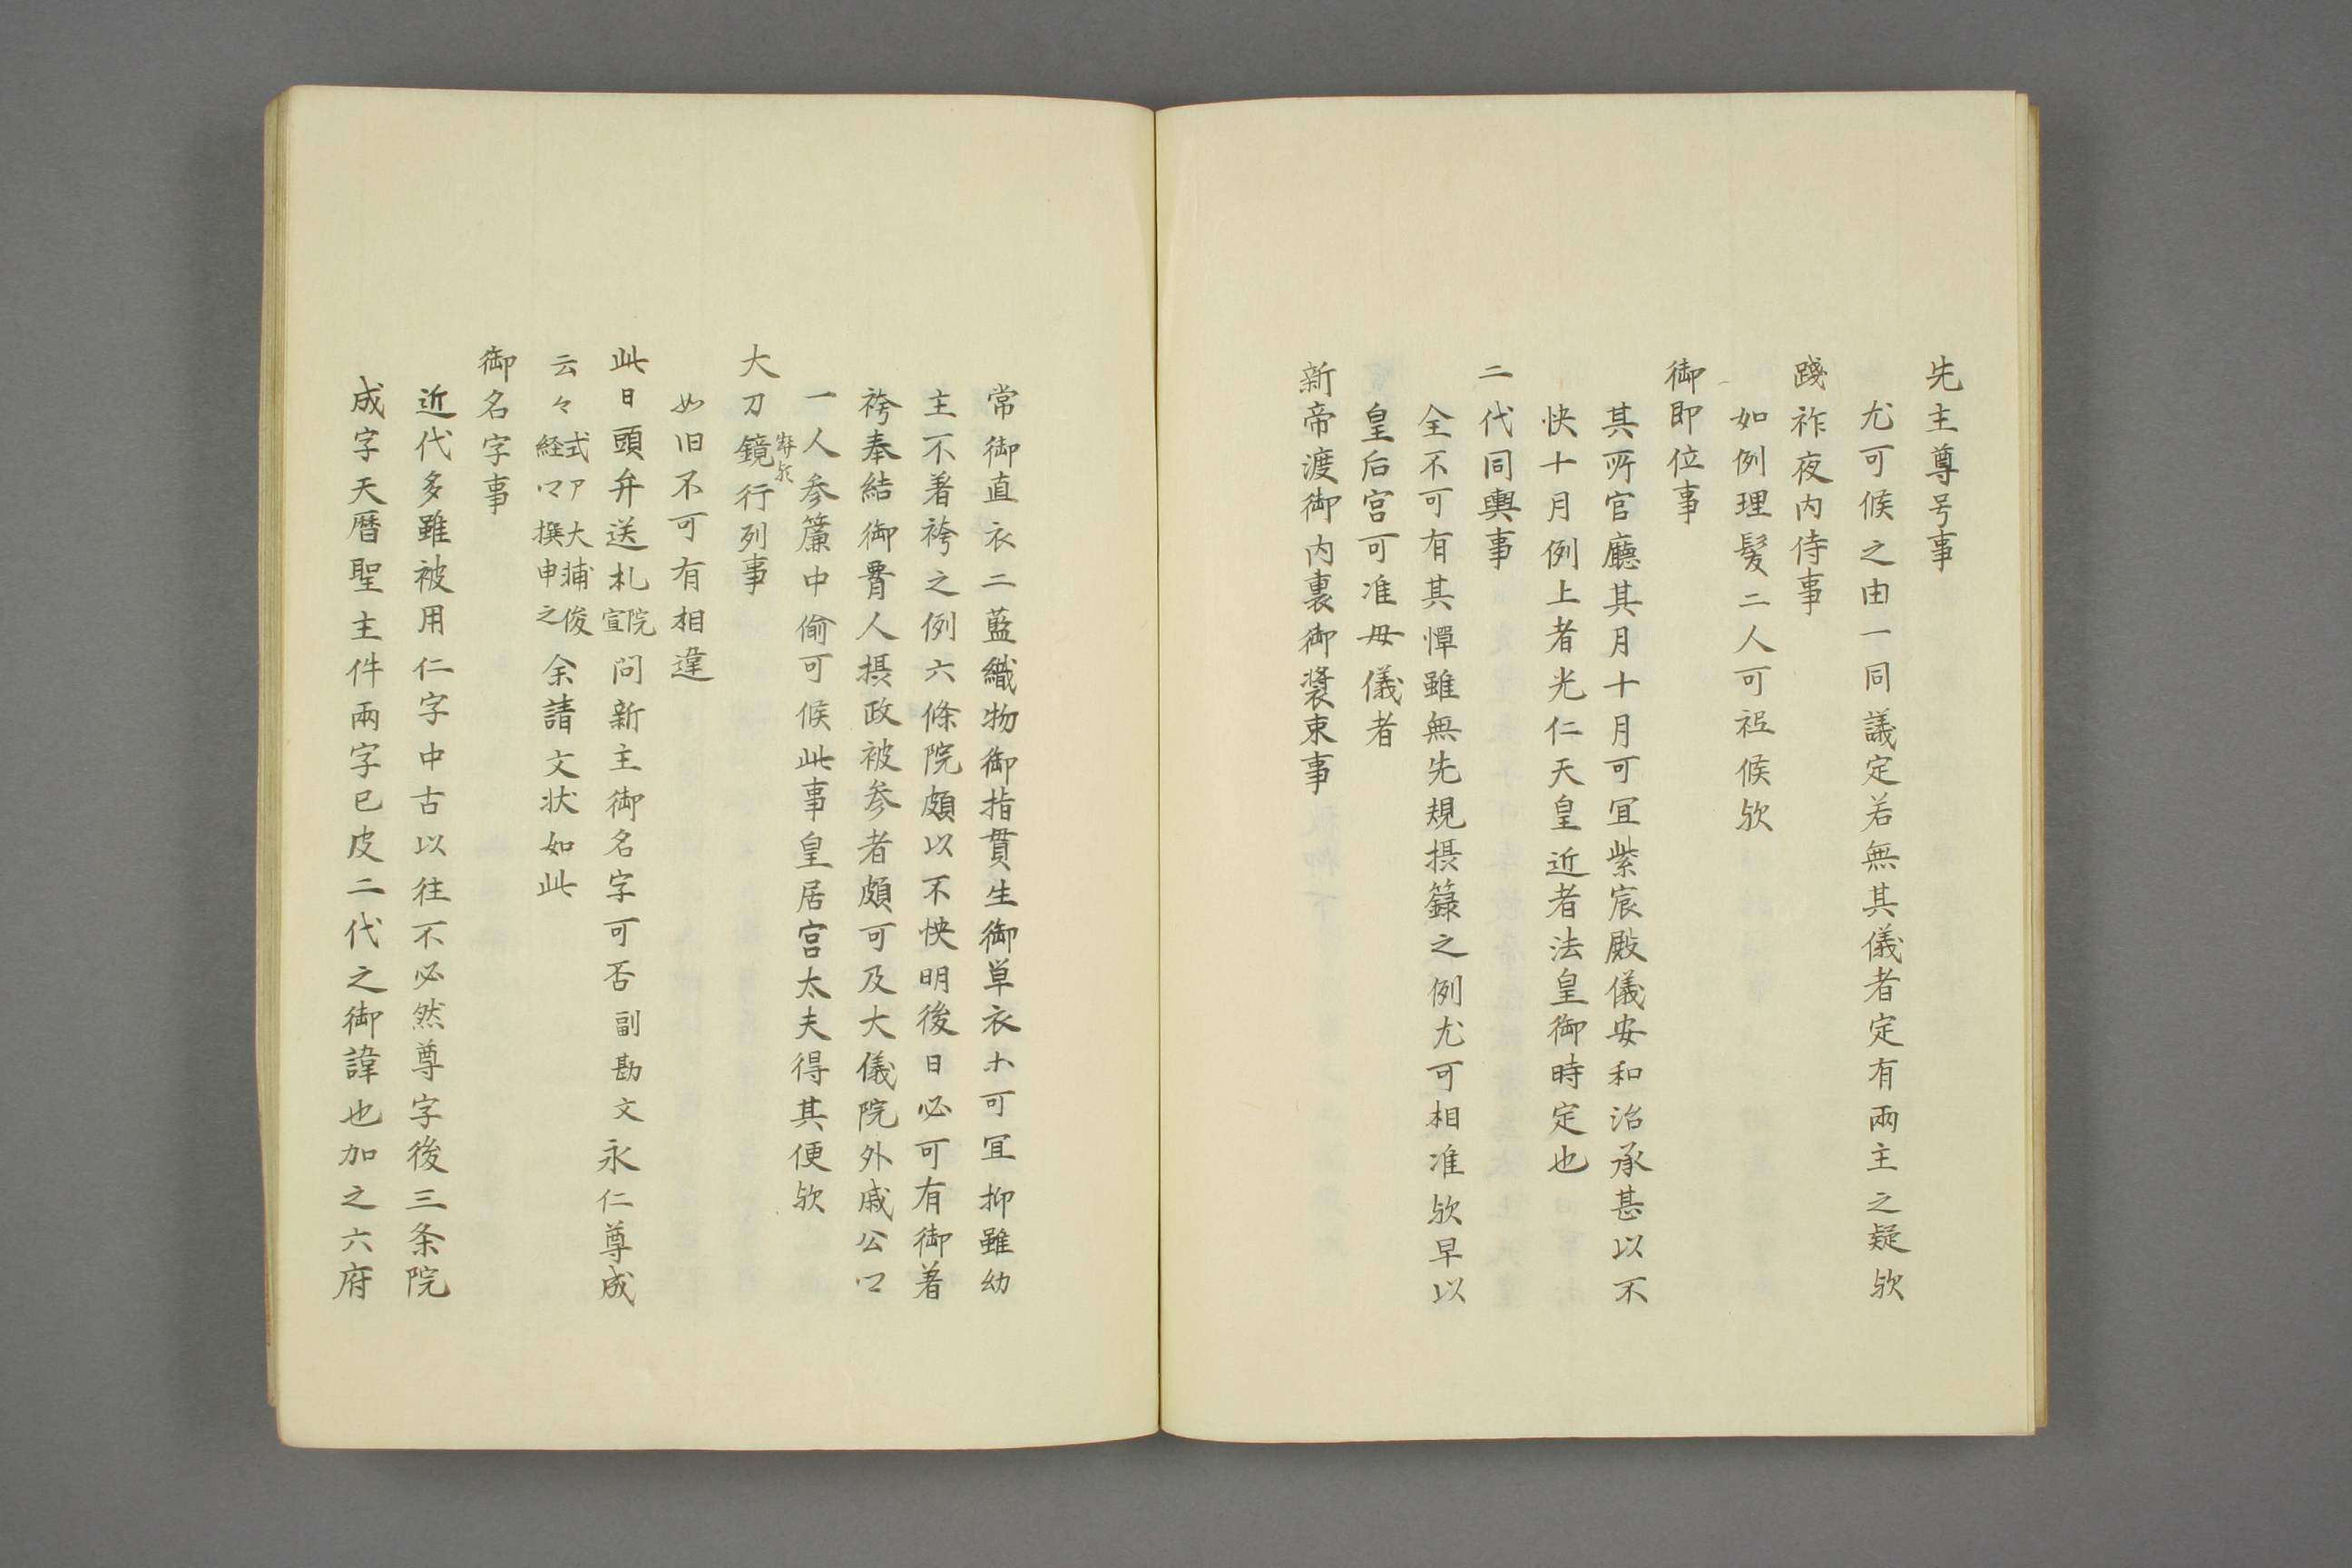 先主尊号事
尤可候之由一同議定若無其儀者定有兩主之疑欤
踐祚夜内侍事
如例理髪二人可祗候欤
御即位事
其所官廳其月十月可冝紫宸殿儀安和治承甚以不
快十月例上者光仁天皇近者法皇御時定也
二代同輿事
全不可有其憚雖無先規摂籙之例尤可相准欤早以
皇后宮可准母儀者
新帝渡御内裏御裝束事
常御直衣二藍織物御指貫生御単衣ホ可冝抑雖幼
主不着袴之例六條院頗以不快明後日必可有御着
袴奉結御署人摂政被参者頗可及大儀院外戚公卩
一人参簾中偷可候此事皇居宮太夫得其便欤
大刀鏡行列事
如旧不可有相違
此日頭弁送札院宣問新主御名字可否副勘文永仁尊成
云々式ア大輔俊経卩撰申之余請文状如此
御名字事
近代多雖被用仁字中古以往不必然尊字後三条院
成字天暦聖主件兩字已皮二代之御諱也加之六府